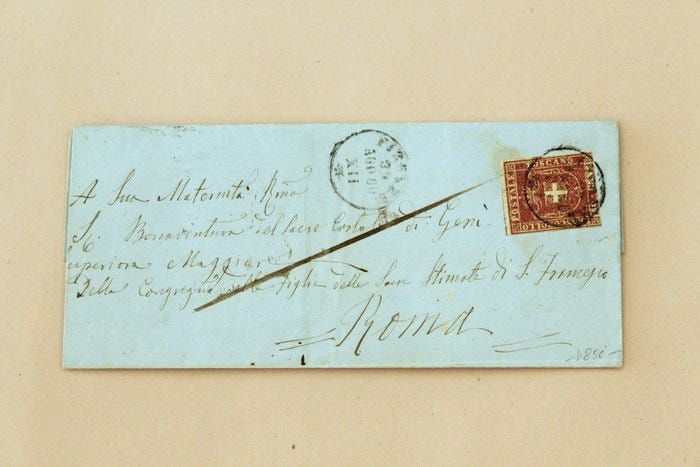 A Sua Maternità Rma
S. Bonaventura del Sacro Costato di Gesù
Superiora Maggiore
Delle Congregne delle Figlie delle Sacre Stimate di S. Francesco
Roma
1850
AGOSTO
XII
TOSCANO
POSTALE
OTTO